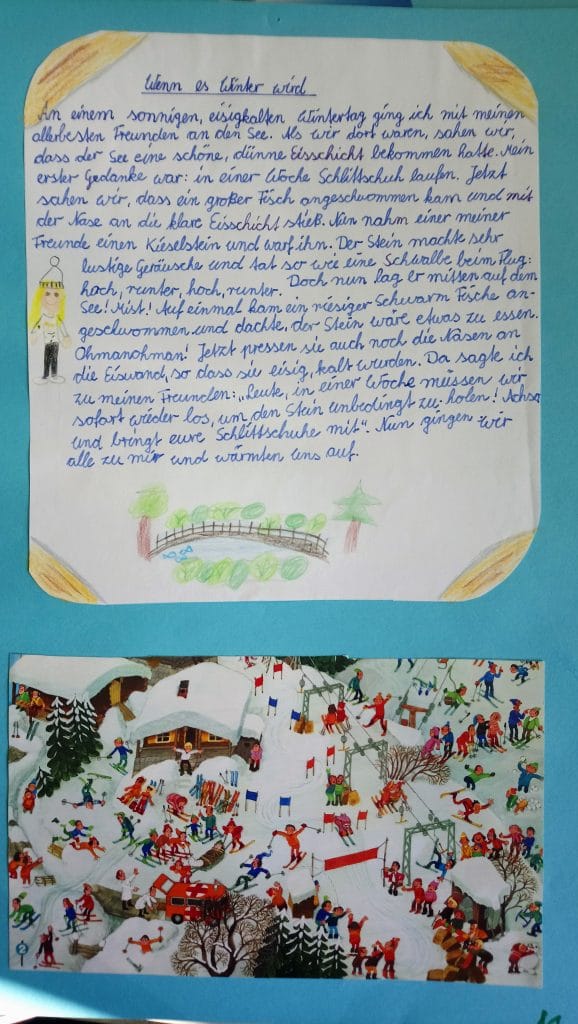 Wenn es Winter wird
An einem sonnigen, eisigkalten Wintertag ging ich mit meinen
allerbesten Freunden an den See. Als wir dort waren, sahen wir,
dass der See eine schöne, dünne Eisschicht bekommen hatte. Mein
erster Gedanke war: in einer Woche Schlittschuh laufen. Jetzt
sahen wir, dass ein großer Fisch angeschwommen kam und mit
der Nase an die klare Eisschicht stieß. Nun nahm einer meiner
Freunde einen Kieselstein und warf ihn. Der Stein machte sehr
lustige Geräusche und tat so wie eine Schwalbe beim Flug:
hoch, runter, hoch, runter. Doch nun lag er mitten auf dem
See! Mist! Auf einmal kam ein riesiger Schwarm Fische an-
geschwommen und dachte, der Stein wäre etwas zu essen.
Ohmanohman! Jetzt pressen sie auch noch die Nasen an
die Eiswand, so dass sie eisig, kalt wurden. Da sagte ich
zu meinen Freunden: „Leute, in einer Woche müssen wir
sofort wieder los, um den Stein unbedingt zu holen! Achso
und bringt eure Schlittschuhe mit“. Nun gingen wir
alle zu mir und wärmten uns auf.